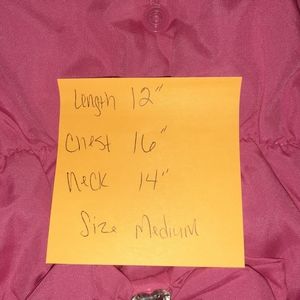 Length 12"
Chest 16"
Neck 14"
Size Medium